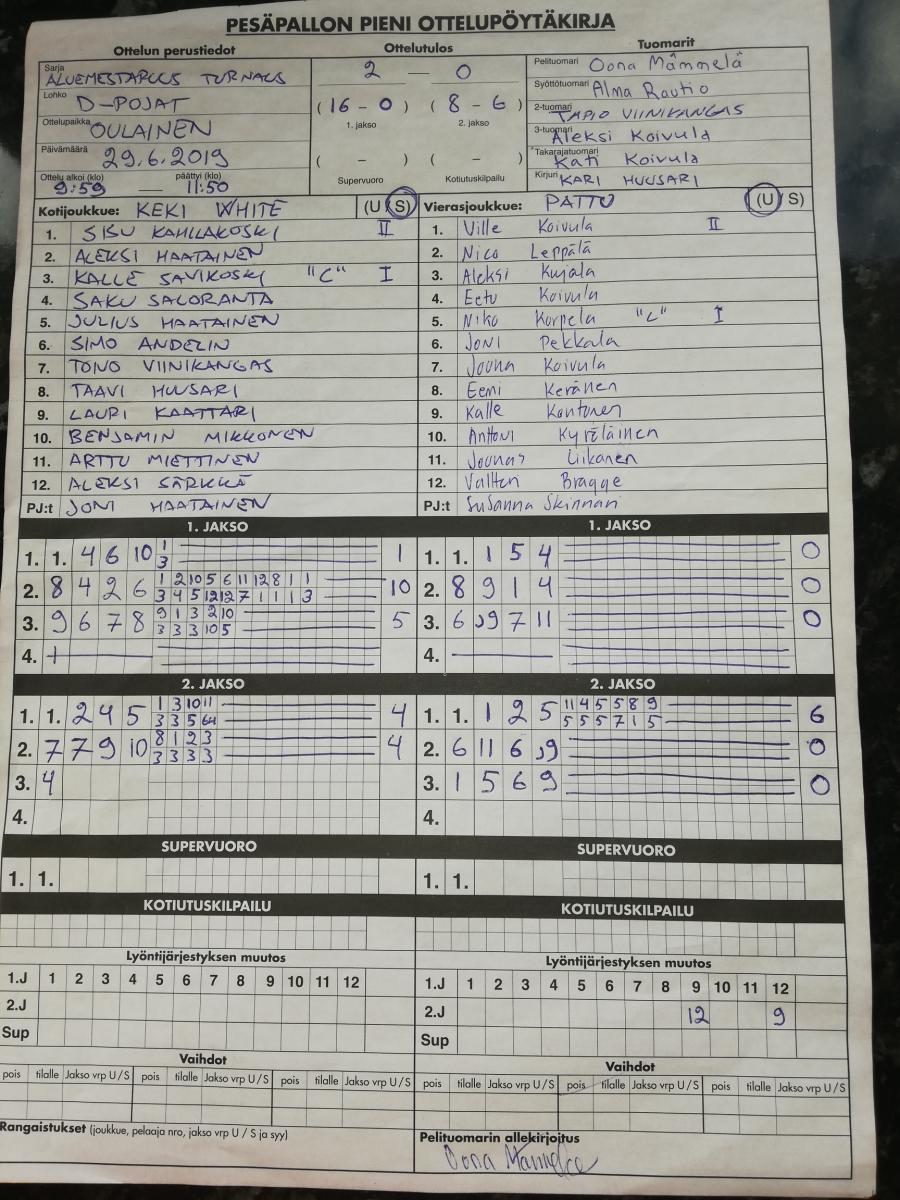 PESÄPALLON PIENI OTTELUPÖYTÄKIRJA
Ottelun perustiedot Ottelutulos Tuomarit
Sarja ALUEMESTARUUS TURNAUS
Lohko D-POJAT
Ottelupaikka OULAINEN
Päivämäärä 29.6.2019
Ottelu alkoi (klo) päättyi (klo)
9:59 — 11:50
2 — 0
(16 - 0) (8 - 6)
1. jakso 2. jakso
( - ) ( - )
Supervuoro Kotiutuskilpailu
Pelituomari Oona Mämmelä
Syöttötuomari Alma Rautio
2-tuomari TAPIO VIINIKANGAS
3-tuomari Aleksi Koivula
Takarajatuomari Kati Koivula
Kirjuri KARI HUUSARI
Kotijoukkue: KEKI WHITE (U S)
1. SISU KAHLAKOSKI II
2. ALEKSI HAATAINEN
3. KALLE SAVIKOSKI "C" I
4. SAKU SALORANTA
5. JULIUS HAATAINEN
6. SIMO ANDELIN
7. TONO VIINIKANGAS
8. TAAVI HUUSARI
9. LAURI KAATTARI
10. BENJAMIN MIKKONEN
11. ARTTU MIETTINEN
12. ALEKSI SÄRKKÄ
PJ:t JONI HAATAINEN
Vierasjoukkue: PATTU (U/S)
1. Ville Koivula II
2. Nico Leppälä
3. Aleksi Kujala
4. Eetu Koivula
5. Niko Korpela "C" I
6. Joni Pekkala
7. Joona Koivula
8. Eemi Keränen
9. Kalle Kontunen
10. Anttoni Kyröläinen
11. Joonas Liikanen
12. Valtteri Bragge
PJ:t Susanna Skinnari
1. JAKSO
1. 1. 4 6 10 1 1
3
2. 8 4 2 6 1 2 10 5 6 11 12 8 1 1 10
3 4 5 12 12 7 1 1 1 3
3. 9 6 7 8 9 1 3 2 10 5
3 3 3 10 5
4.
1. JAKSO
1. 1. 1 5 4 0
2. 8 9 1 4 0
3. 6 9 7 11 0
4.
2. JAKSO
1. 1. 2 4 5 1 3 10 11 4
3 3 5
2. 7 7 9 10 8 1 2 3 4
3 3 3 3
3. 4
4.
2. JAKSO
1. 1. 1 2 5 11 4 5 5 8 9 6
5 5 5 7 1 5
2. 6 11 6 9 0
3. 1 5 6 9 0
4.
SUPERVUORO SUPERVUORO
1. 1. 1. 1.
KOTIUTUSKILPAILU KOTIUTUSKILPAILU
Lyöntijärjestyksen muutos
1.J 1 2 3 4 5 6 7 8 9 10 11 12
2.J
Sup
Lyöntijärjestyksen muutos
1.J 1 2 3 4 5 6 7 8 9 10 11 12
2.J 12 9
Sup
Vaihdot
pois tilalle Jakso vrp U/S pois tilalle Jakso vrp U/S pois tilalle Jakso vrp U/S
Vaihdot
pois tilalle Jakso vrp U/S pois tilalle Jakso vrp U/S pois tilalle Jakso vrp U/S
Rangaistukset (joukkue, pelaaja nro, jakso vrp U / S ja syy)
Pelituomarin allekirjoitus
Oona Mämmelä